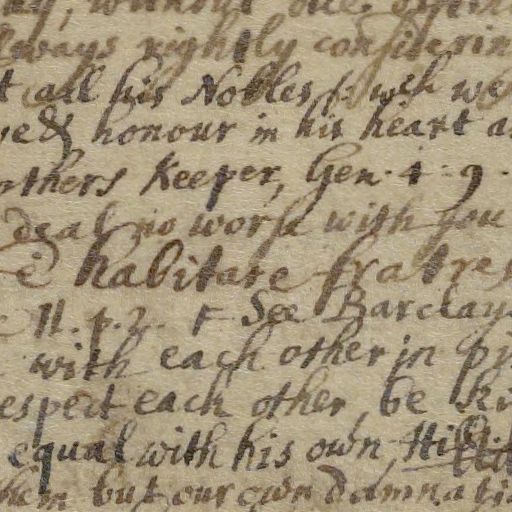 always rightly considerin
t all his Nobles, & wch we
honour in his heart a
others Keeper, Gen. 4. 9.
deal no worse with you
habitare fratres
H. p. 2. See Barclay
with each other in
espect each other, be
equal with his own
hem but our own damnati